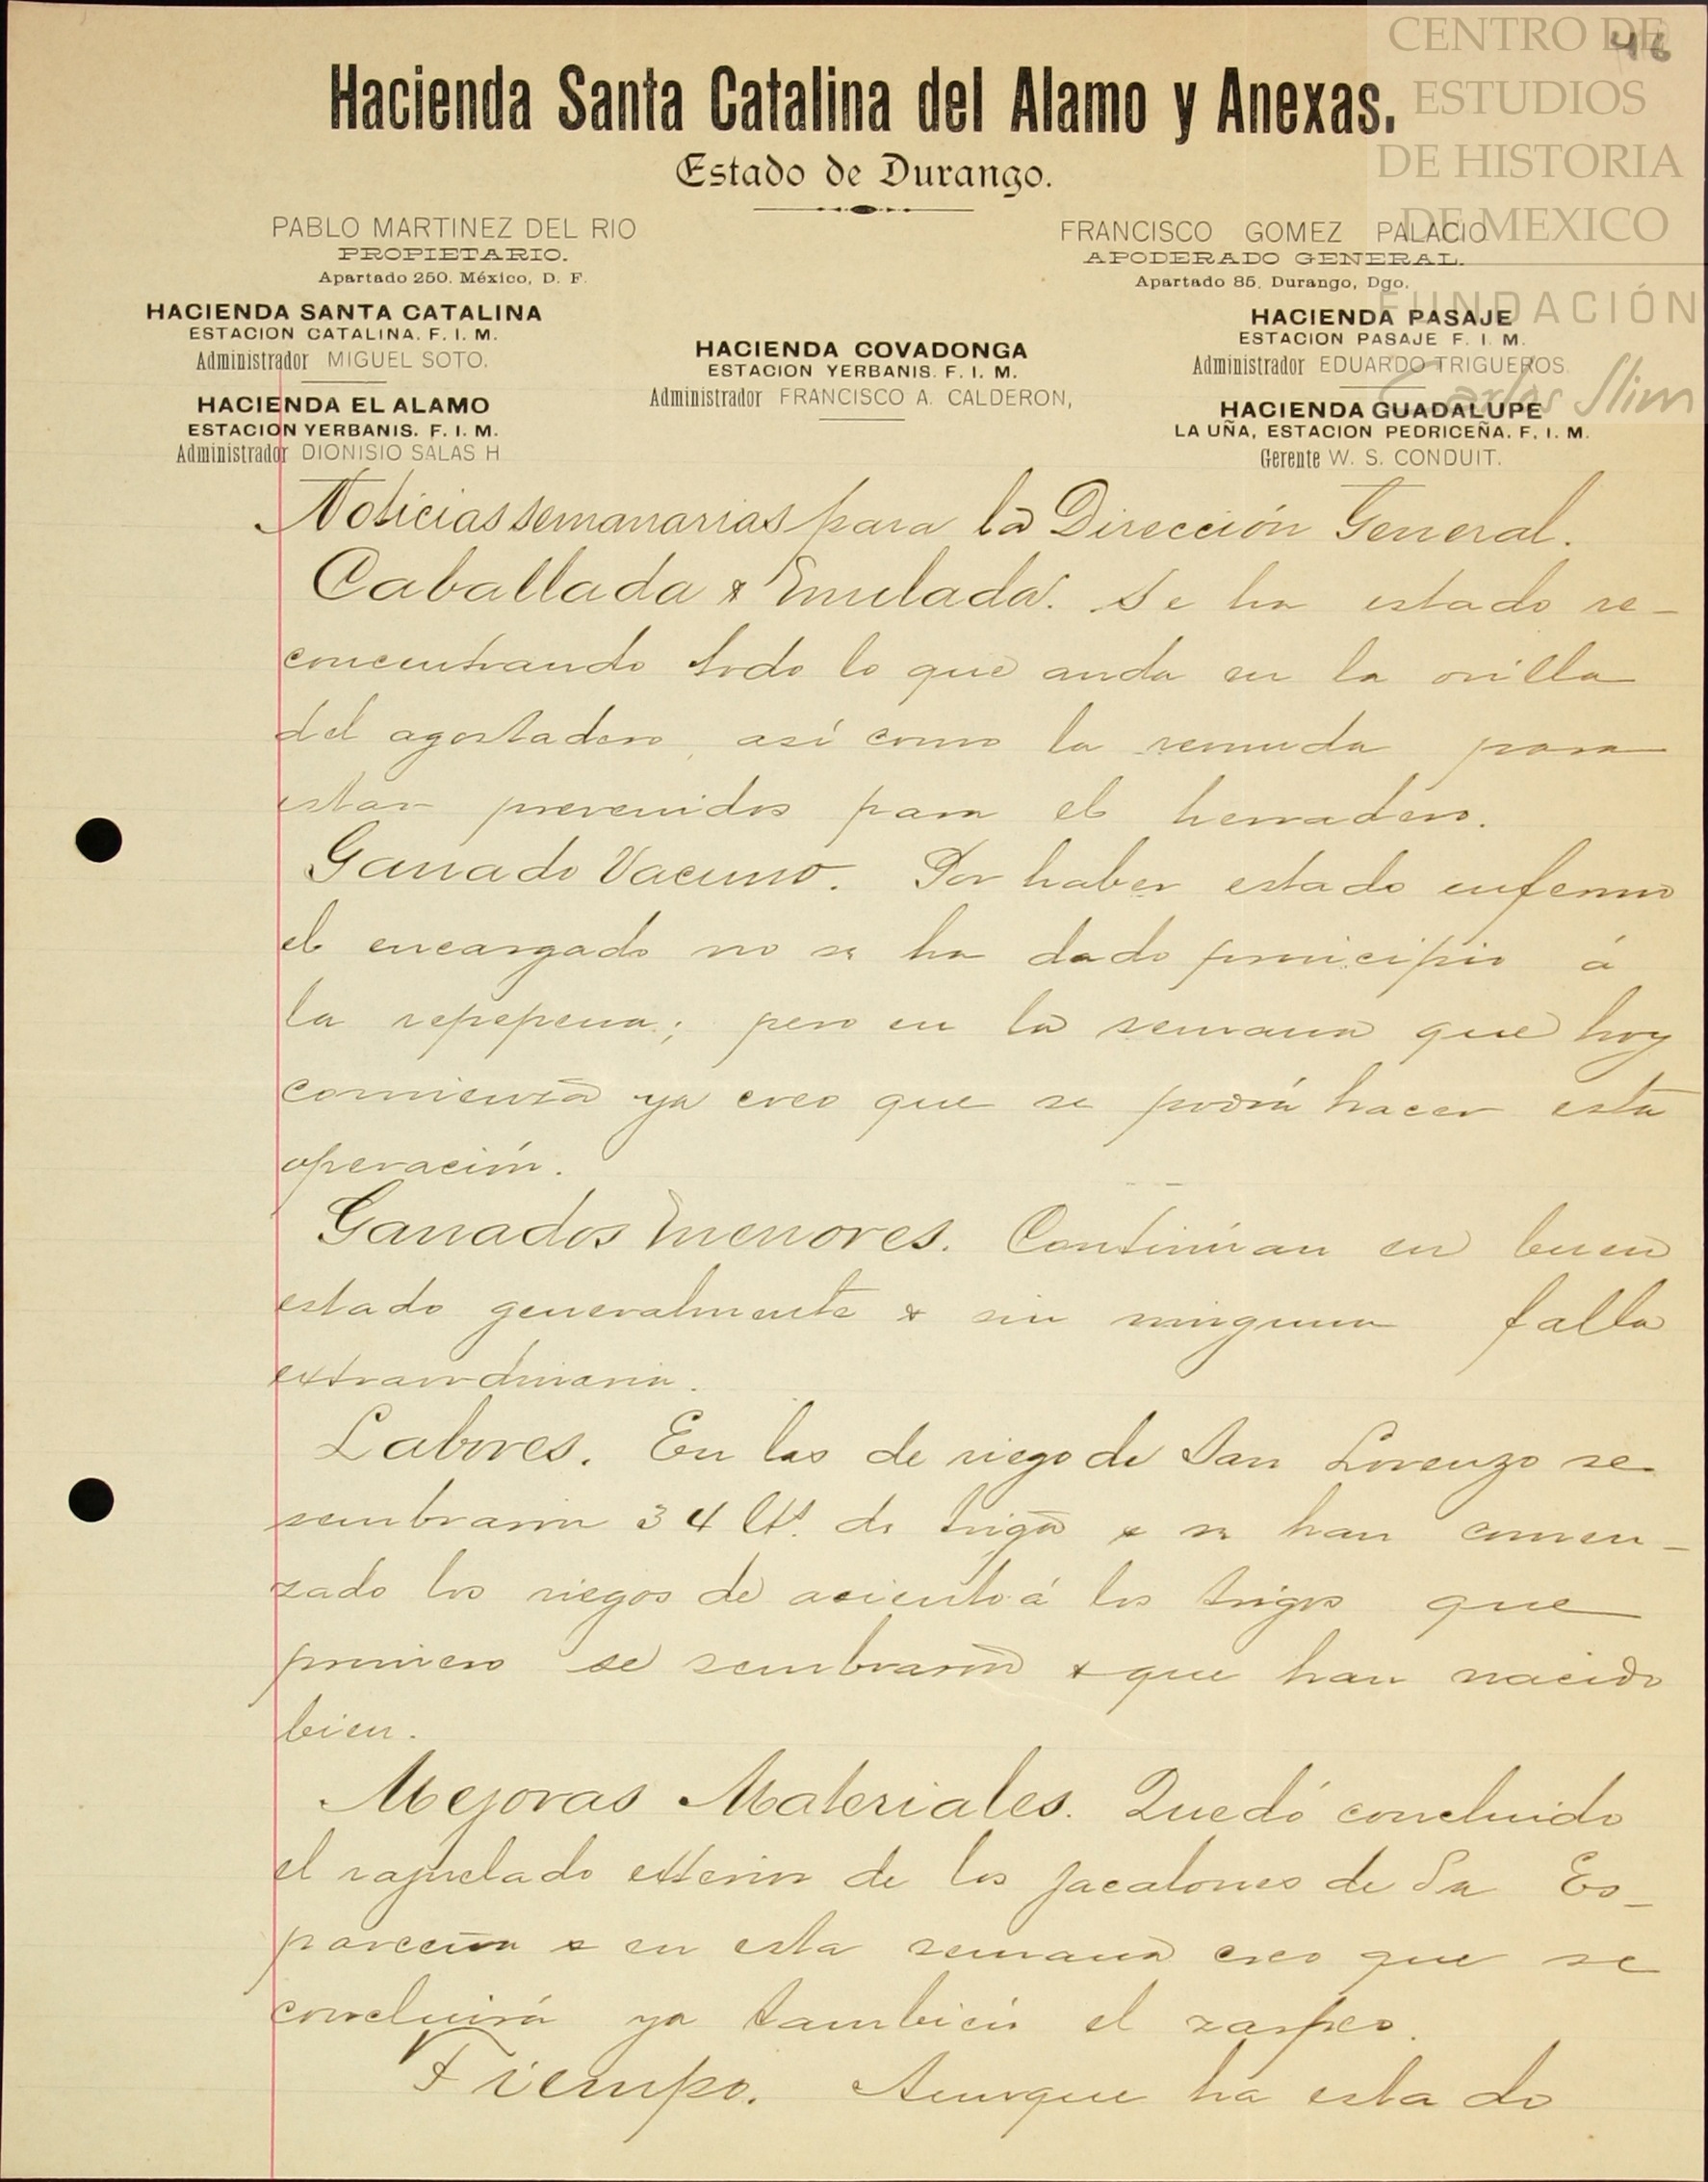 CENTRO DE
ESTUDIOS
DE HISTORIA
DE MEXICO
FUNDACIÓN
Carlos Slim
46
Hacienda Santa Catalina del Alamo y Anexas.
Estado de Durango.
PABLO MARTINEZ DEL RIO
PROPIETARIO.
Apartado 250. México, D. F.
FRANCISCO GOMEZ PALACIO
APODERADO GENERAL.
Apartado 85, Durango, Dgo.
HACIENDA SANTA CATALINA
ESTACION CATALINA. F. I. M.
Administrador MIGUEL SOTO.
HACIENDA EL ALAMO
ESTACION YERBANIS. F. I. M.
Administrador DIONISIO SALAS H
HACIENDA COVADONGA
ESTACION YERBANIS. F. I. M.
Administrador FRANCISCO A. CALDERON,
HACIENDA PASAJE
ESTACION PASAJE F. I. M.
Administrador EDUARDO TRIGUEROS
HACIENDA GUADALUPE
LA UÑA, ESTACION PEDRICEÑA. F. I. M.
Gerente W. S. CONDUIT.
Noticias semanarias para la Dirección General.
Caballada & Mulada. Se ha estado re-
concentrando todo lo que anda en la orilla
del agostadero, así como la remuda para
estar prevenidos para el herradero.
Ganado Vacuno. Por haber estado enfermo
el encargado no se ha dado principio á
la repepena; pero en la semana que hoy
comienza ya creo que se podrá hacer esta
operación.
Ganados Menores. Continúan en buen
estado generalmente & sin ninguna falla
extraordinaria.
Labores. En las de riego de San Lorenzo se
sembraron 34 Hts. de trigo & se han comen-
zado los riegos de asiento á los trigos que
primero se sembraron & que han nacido
bien.
Mejoras Materiales. Quedó concluido
el rajuelado exterior de los jacalones de La Es-
parceña & en esta semana creo que se
concluirá ya también el zarpeo.
Tiempo. Aunque ha estado